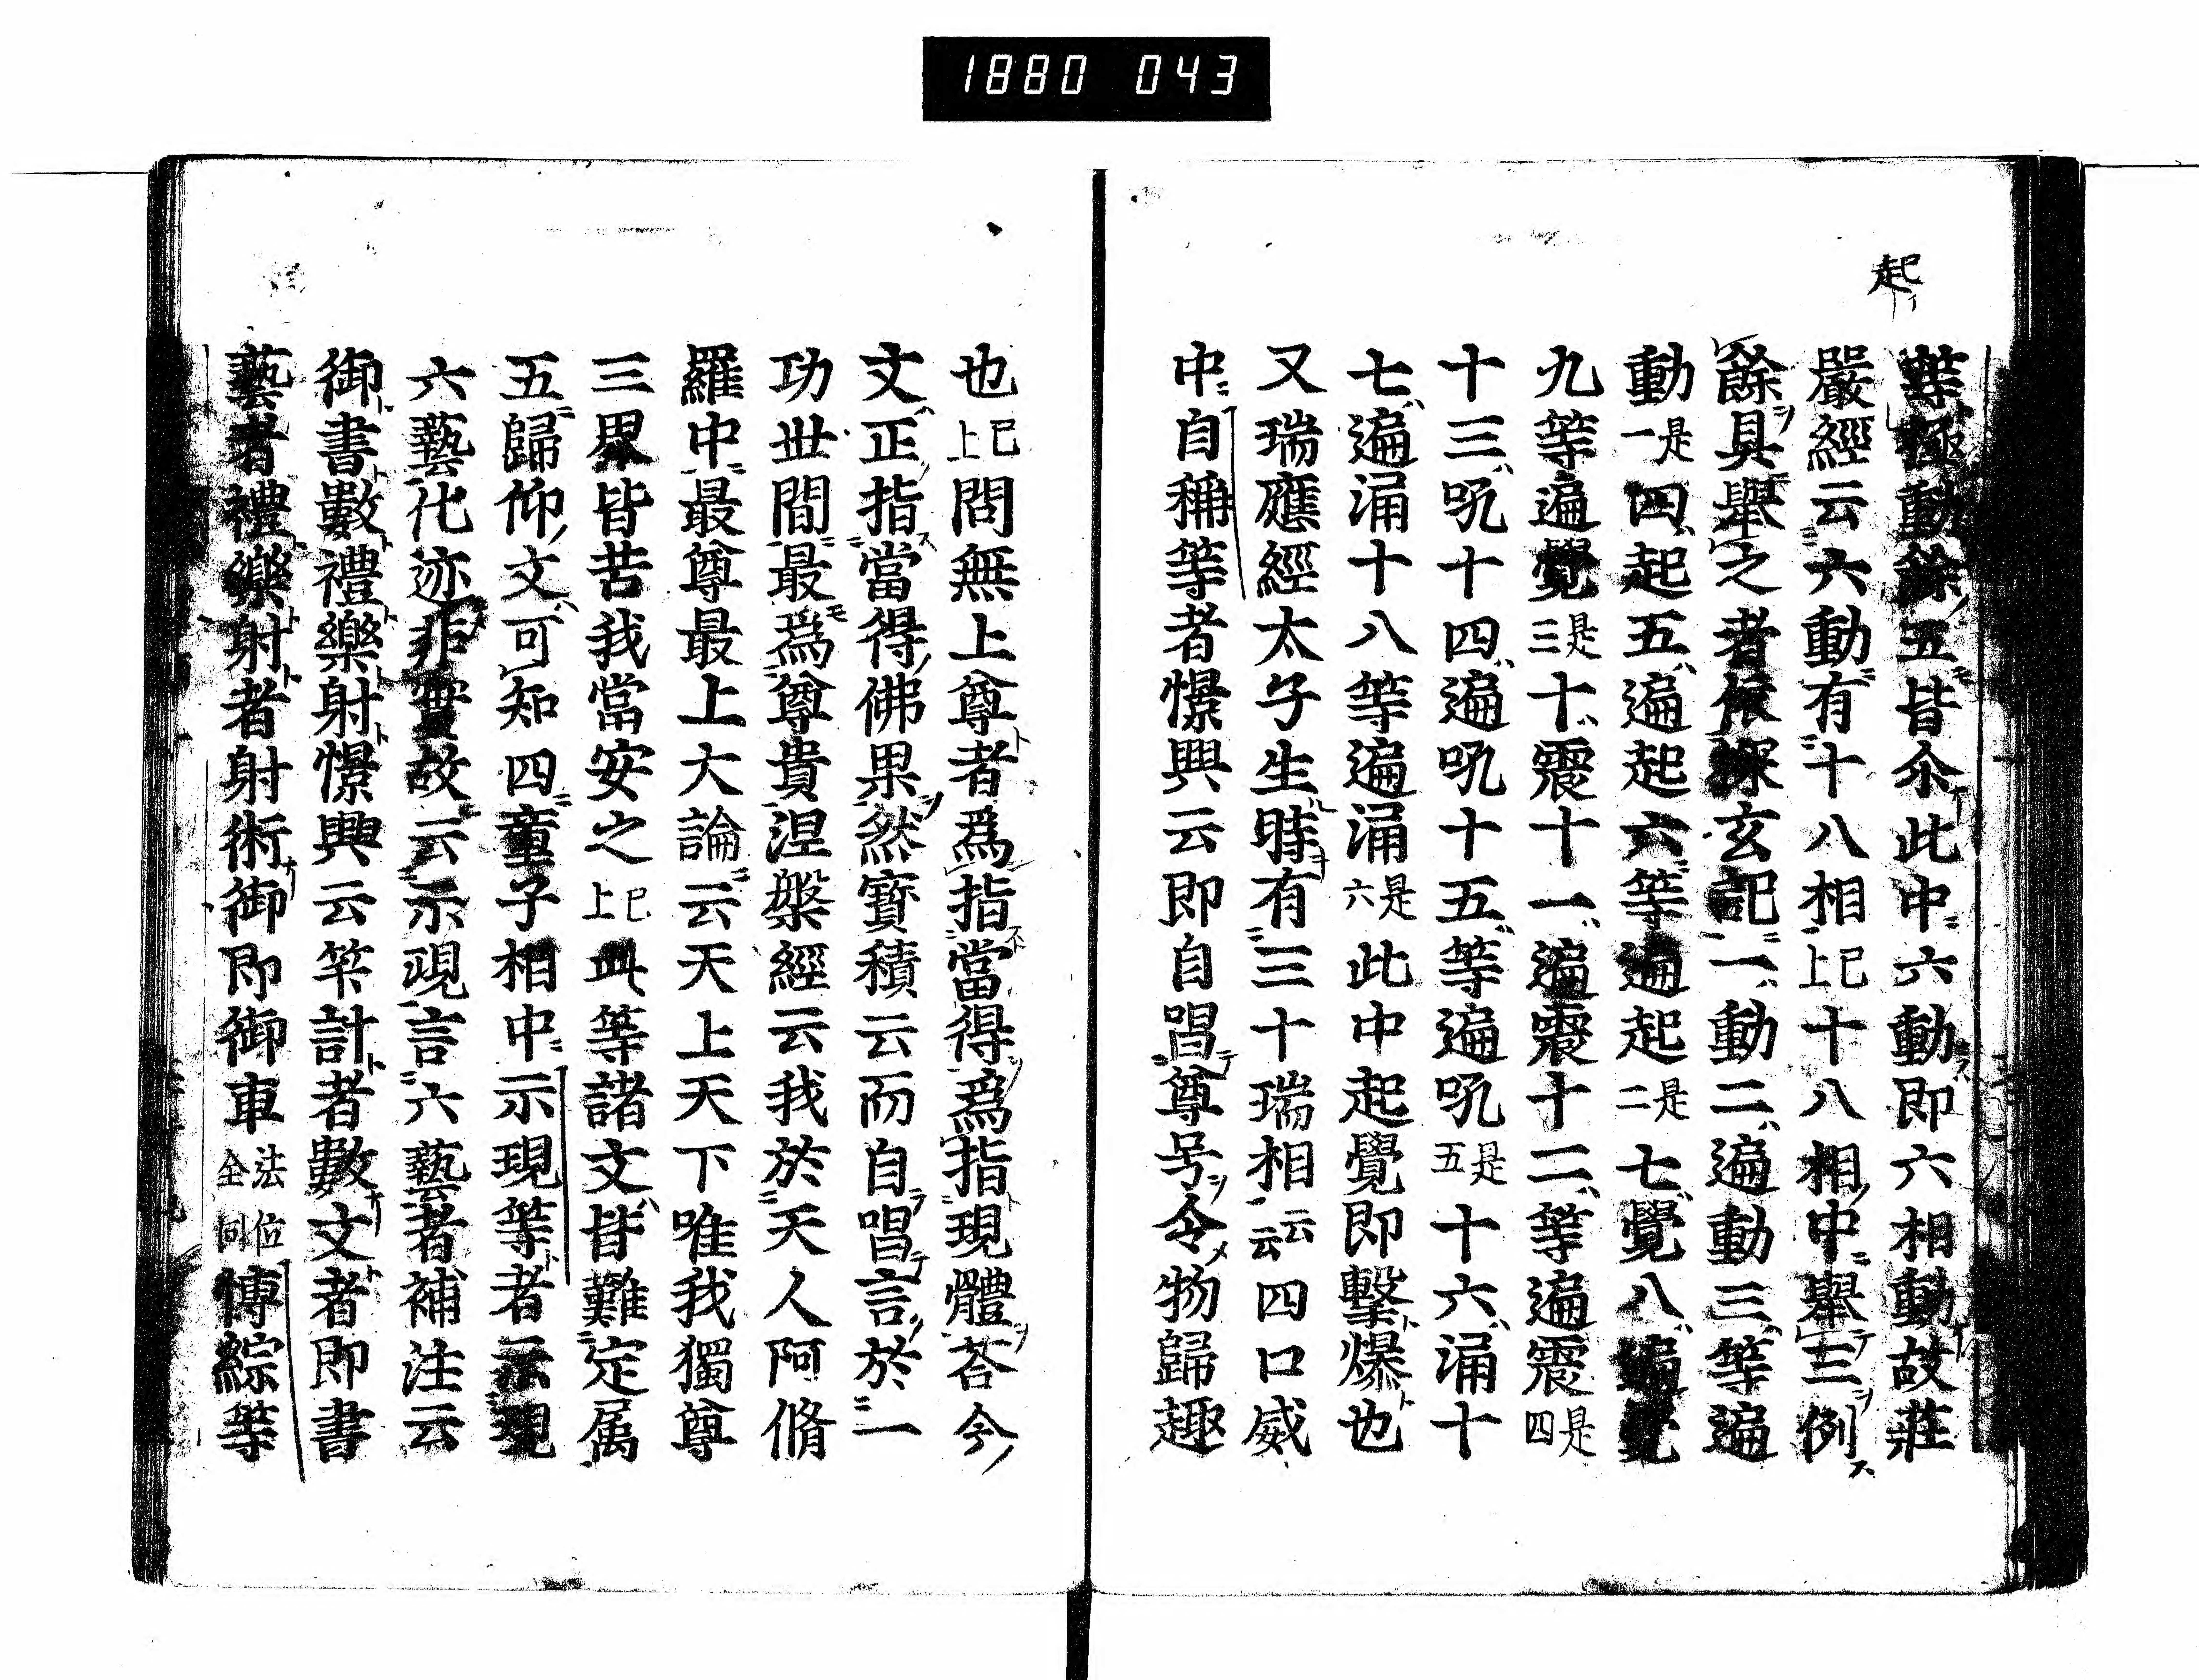 1880 043
起
等極動餘五皆尒此中六動即六相動故莊
嚴經云六動有十八相已上十八相中舉三例
餘具舉之者依探玄記一動二遍動三等遍
動是一四起五遍起六等遍起是二七覺八遍覺
九等遍覺是三十震十一遍震十二等遍震是四
十三吼十四遍吼十五等遍吼是五十六涌十
七遍涌十八等遍涌是六此中起覺即擊爆也
又瑞應經太子生時有三十瑞相云云四口威
中自稱等者憬興云即自唱尊号令物歸趣
也已上問無上尊者爲指當得爲指現體荅今
文正指當得佛果然寶積云而自唱言於一
功世間最爲尊貴涅槃經云我於天人阿脩
羅中最尊最上大論云天上天下唯我獨尊
三界皆苦我當安之已上此等諸文皆難定属
五歸仰文可知四童子相中示現等者示現
六藝化迹非實故云示現言六藝者補注云
御書數禮樂射憬興云筭計者數文者即書
藝者禮樂射者射術御即御車法位全同博綜等